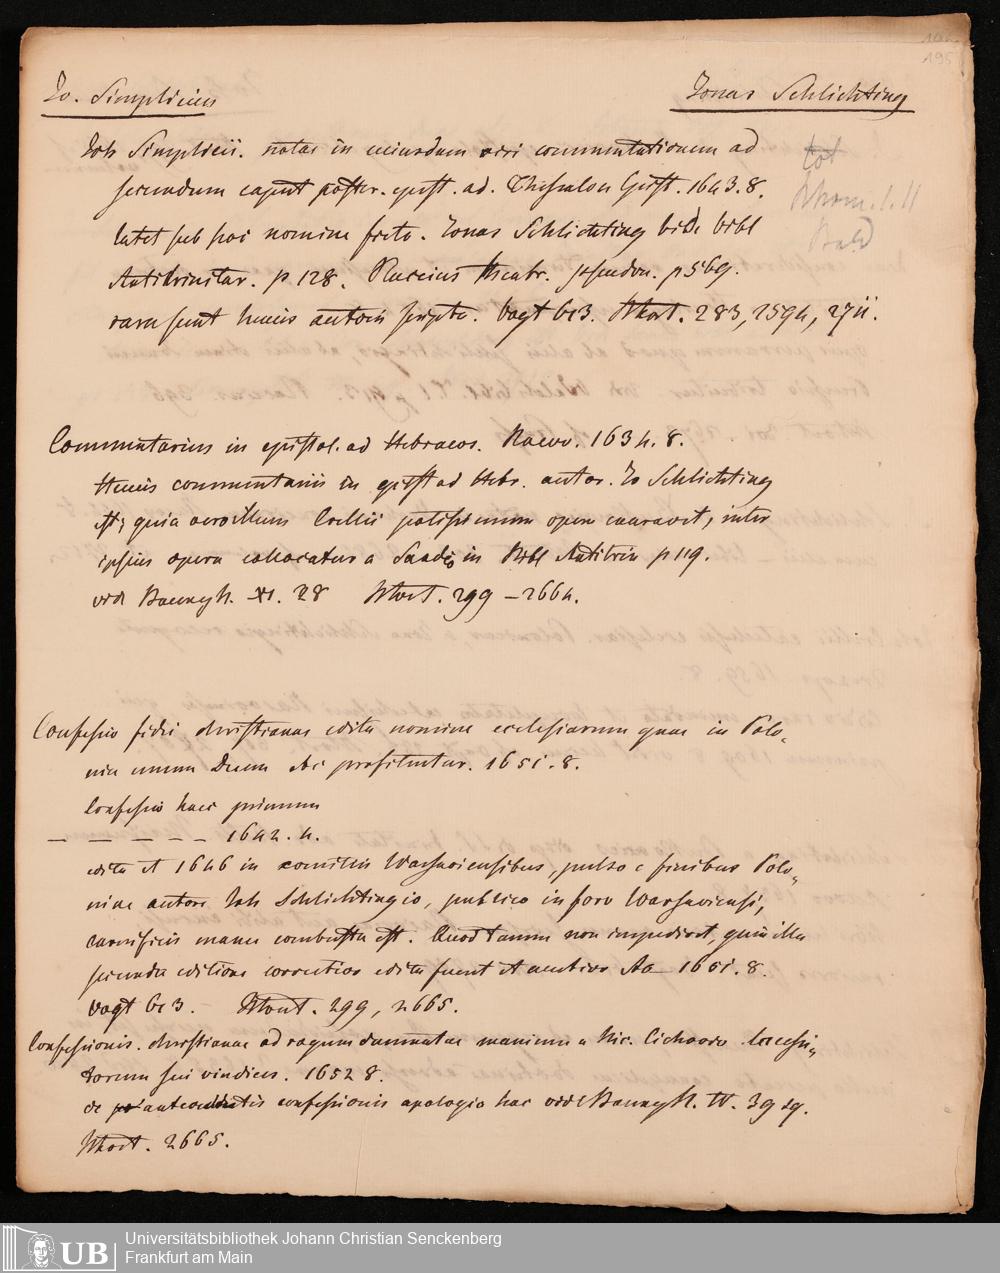 195
Jo. Simplicius
Jonas Schlichting
Joh Simplicii. notae in eiusdem viri commentationem ad
secundum caput poster. epist. ad. Thessalon 1643. 8.
latet sub hoc nomine ficto. Jonas Schlichting bibl
Antitrinitar. p 128. Placcius theatr. pseudon. p 569.
rara sunt huius autoris scripta. Vogt 613. 283, 2594, 2711.
Commentarius in epistol. ad Hebraeos. Racov. 1634. 8.
Huius commentarii in epist ad Hebr. autor. Jo Schlichting
est; quia vero illum Crellii potissimum opera exaravit, inter
ipsius opera collocatur a Sandio in Bibl Antitrin p 119.
vide XI. 28 299 – 2664.
Confessio fidei christianae edita nomine ecclesiarum quae in Polo-
nia unum Deum etc profitentur. 1651. 8.
Confessio haec primum
– – – – – 1642. 4.
edita et 1646 in comitiis Warsaviensibus, pulso e finibus Polo-
niae autore Joh Schlichtingio, publico in foro Warsaviensi,
carnificis manu combusta est. Quod tamen non impedivit, quin illa
secunda editione correctior edita fuerit et auctior Ao 1651. 8.
Vogt 613. 299, 2665.
Confessionis. christianae ad rogum damnatae manium a Nic. Cichovio lacessi-
torum sui vindices. 1652 8.
de antecedentis confessionis apologia hac vide IV. 39 sq.
2665.
UB
Universitätsbibliothek Johann Christian Senckenberg
Frankfurt am Main